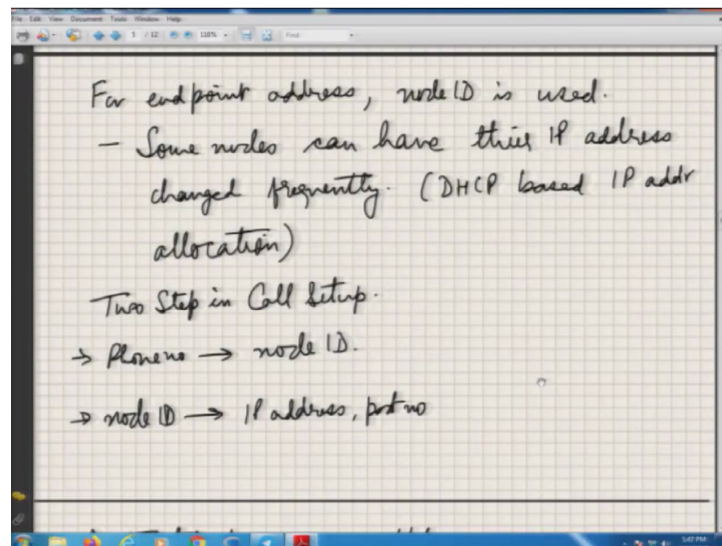 File Edit View Document Tools Window Help
5 / 12 110% Find
For endpoint address, node ID is used.
- Some nodes can have thier IP address
changed frequently. (DHCP based IP addr
allocation)
Two Step in Call Setup.
→ Phone no → node ID.
→ node ID → IP address, port no
5:47 PM